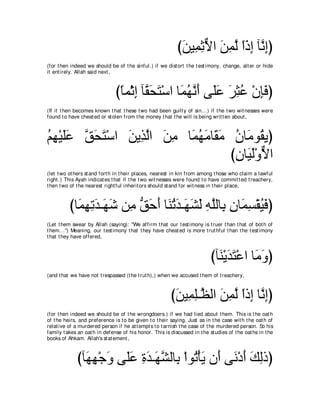 (إِنَّآ إِذَاً لَّمِنَ الاٌّثِمِينَ)
(for then indeed we should be of the sinful.) if we distort the testimony, change, alter or hide
it entirely. Allah said next,
(فَإِنْ عُثِرَ عَلَى أَنَّهُمَا اسْتَحَقَّآ إِثْماً)
(If it then becomes known that these two had been guilty of sin...) if the two witnesses were
found to have cheated or stolen from the money that the will is being written about,
(فَآخَرَانِ يِقُومَانُ مَقَامَهُمَا مِنَ الَّذِينَ اسْتَحَقَّ عَلَيْهِمُ
الاٌّوْلَيَانِ)
(let two others stand forth in their places, nearest in kin from among those who claim a lawful
right.) This Ayah indicates that if the two witnesses were found to have committed treachery,
then two of the nearest rightful inheritors should stand for witness in their place,
(فَيُقْسِمَانِ بِاللَّهِ لَشَهَـدَتُنَا أَحَقُّ مِن شَهَـدَتِهِمَا)
(Let them swear by Allah (saying): "We affirm that our testimony is truer than that of both of
them...") Meaning, our testimony that they have cheated is more truthful than the testimony
that they have offered,
(وَمَا اعْتَدَيْنَآ)
(and that we have not trespassed (the truth),) when we accused them of treachery,
(إِنَّا إِذاً لَّمِنَ الظَّـلِمِينَ)
(for then indeed we should be of the wrongdoers.) if we had lied about them. This is the oath
of the heirs, and preference is to be given to their saying. Just as in the case with the oath of
relative of a murdered person if he attempts to tarnish the case of the murdered person. So his
family takes an oath in defense of his honor. This is discussed in the studies of the oaths in the
books of Ahkam. Allah's statement,
(ذَلِكَ أَدْنَى أَن يَأْتُواْ بِالشَّهَـدَةِ عَلَى وَجْهِهَآ)